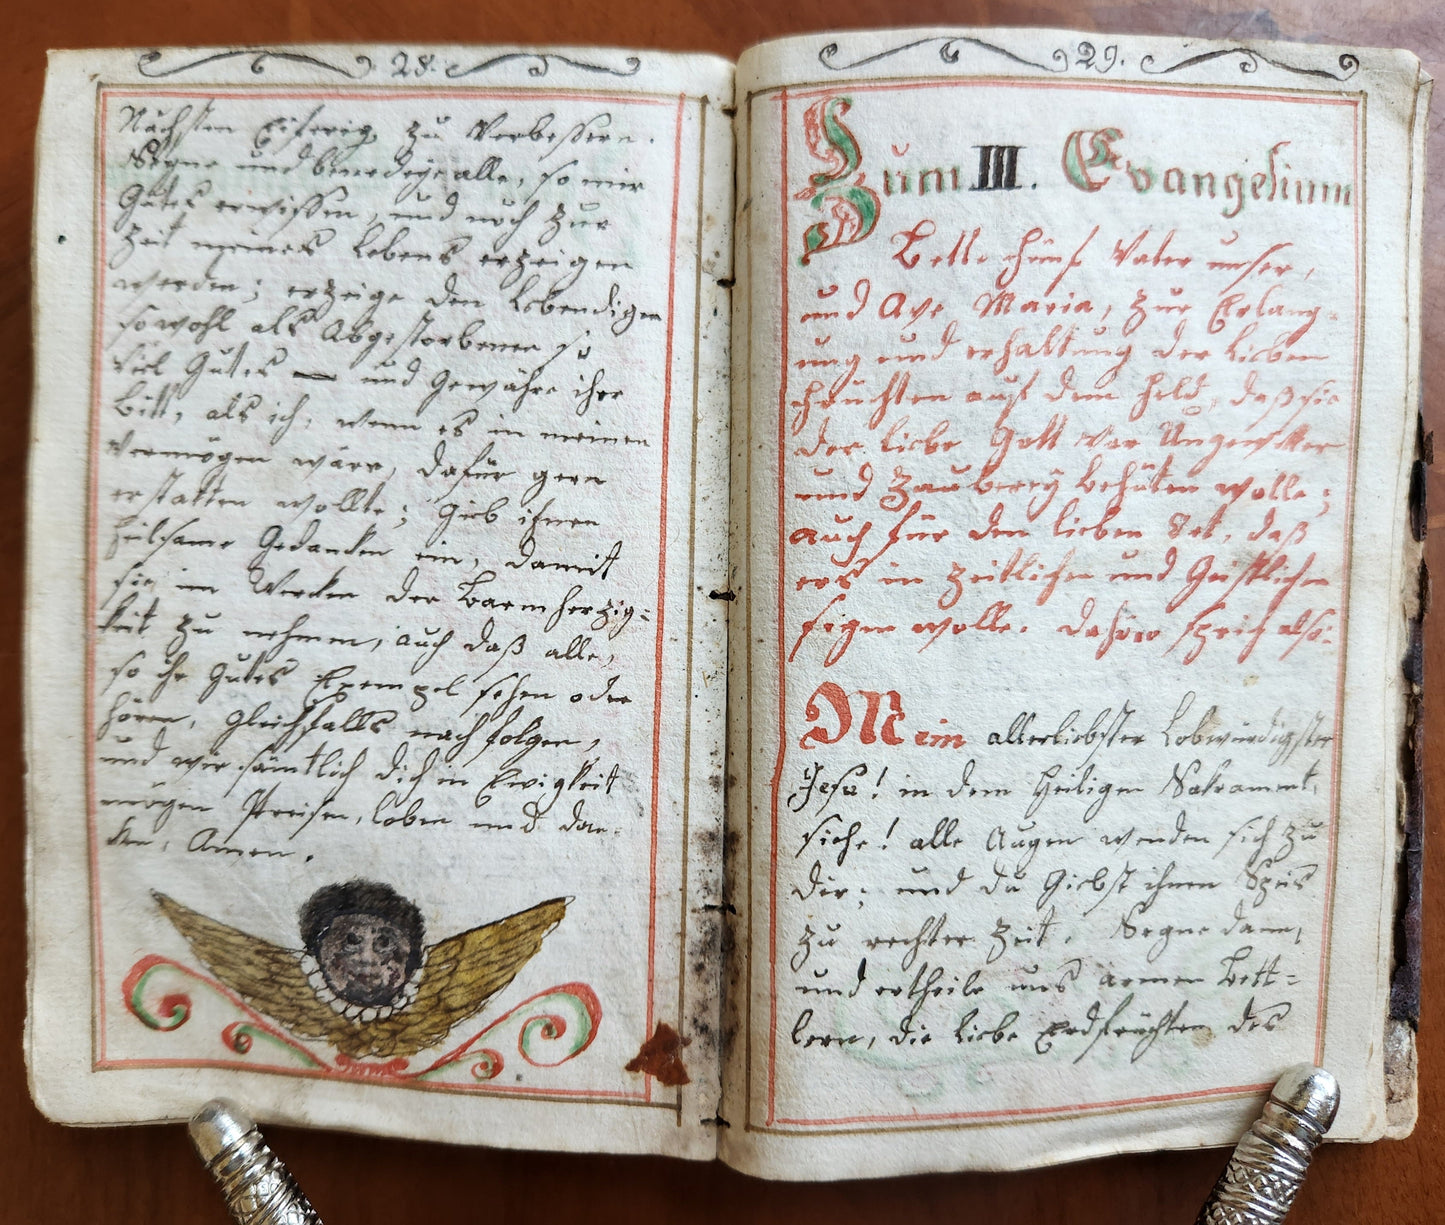 28.
Nächsten Eiferig zu Verbessern.
Segne und benedeye alle, so mir
Gutes erwissen, und noch zur
Zeit meines Lebens erzeigen
werden; erzeige den Lebendigen
sowohl als Abgestorbenen so
viel Gutes und Gewähre ihrer
bitt, als ich, wenn es in meinen
Vermögen wäre, dafür gern
erstatten wollte; Gieb ihnen
heilsame Gedanken ein, damit
sie im Werken der Barmherzig=
keit zu nehmen, auch daß alle,
so ihr Gutes Exempel sehen oder
hören, gleichfalls nachfolgen,
und wir sämtlich dich in Ewigkeit
mögen Preisen, loben und dan=
ken, Amen.
29.
Zum III. Evangelium
Bette fünf Vater unser,
und Ave Maria, zur Erlang=
ung und erhaltung der lieben
früchten auf dem Feld, daß sie
der liebe Gott vor Ungewitter
und Zauberey behüten wolle;
auch für den lieben daß
ers in zeitlichen und Geistlichen
segen wolle. sprich also:
Mein allerliebster Lobwürdigster
Jesu! in dem Heiligen Sakrament,
siehe! alle Augen wenden sich zu
dir; und du Giebst ihnen Speis
zu rechter Zeit. Segne dann,
und ertheile uns armen Bett=
lern, die liebe Erdfrüchten des